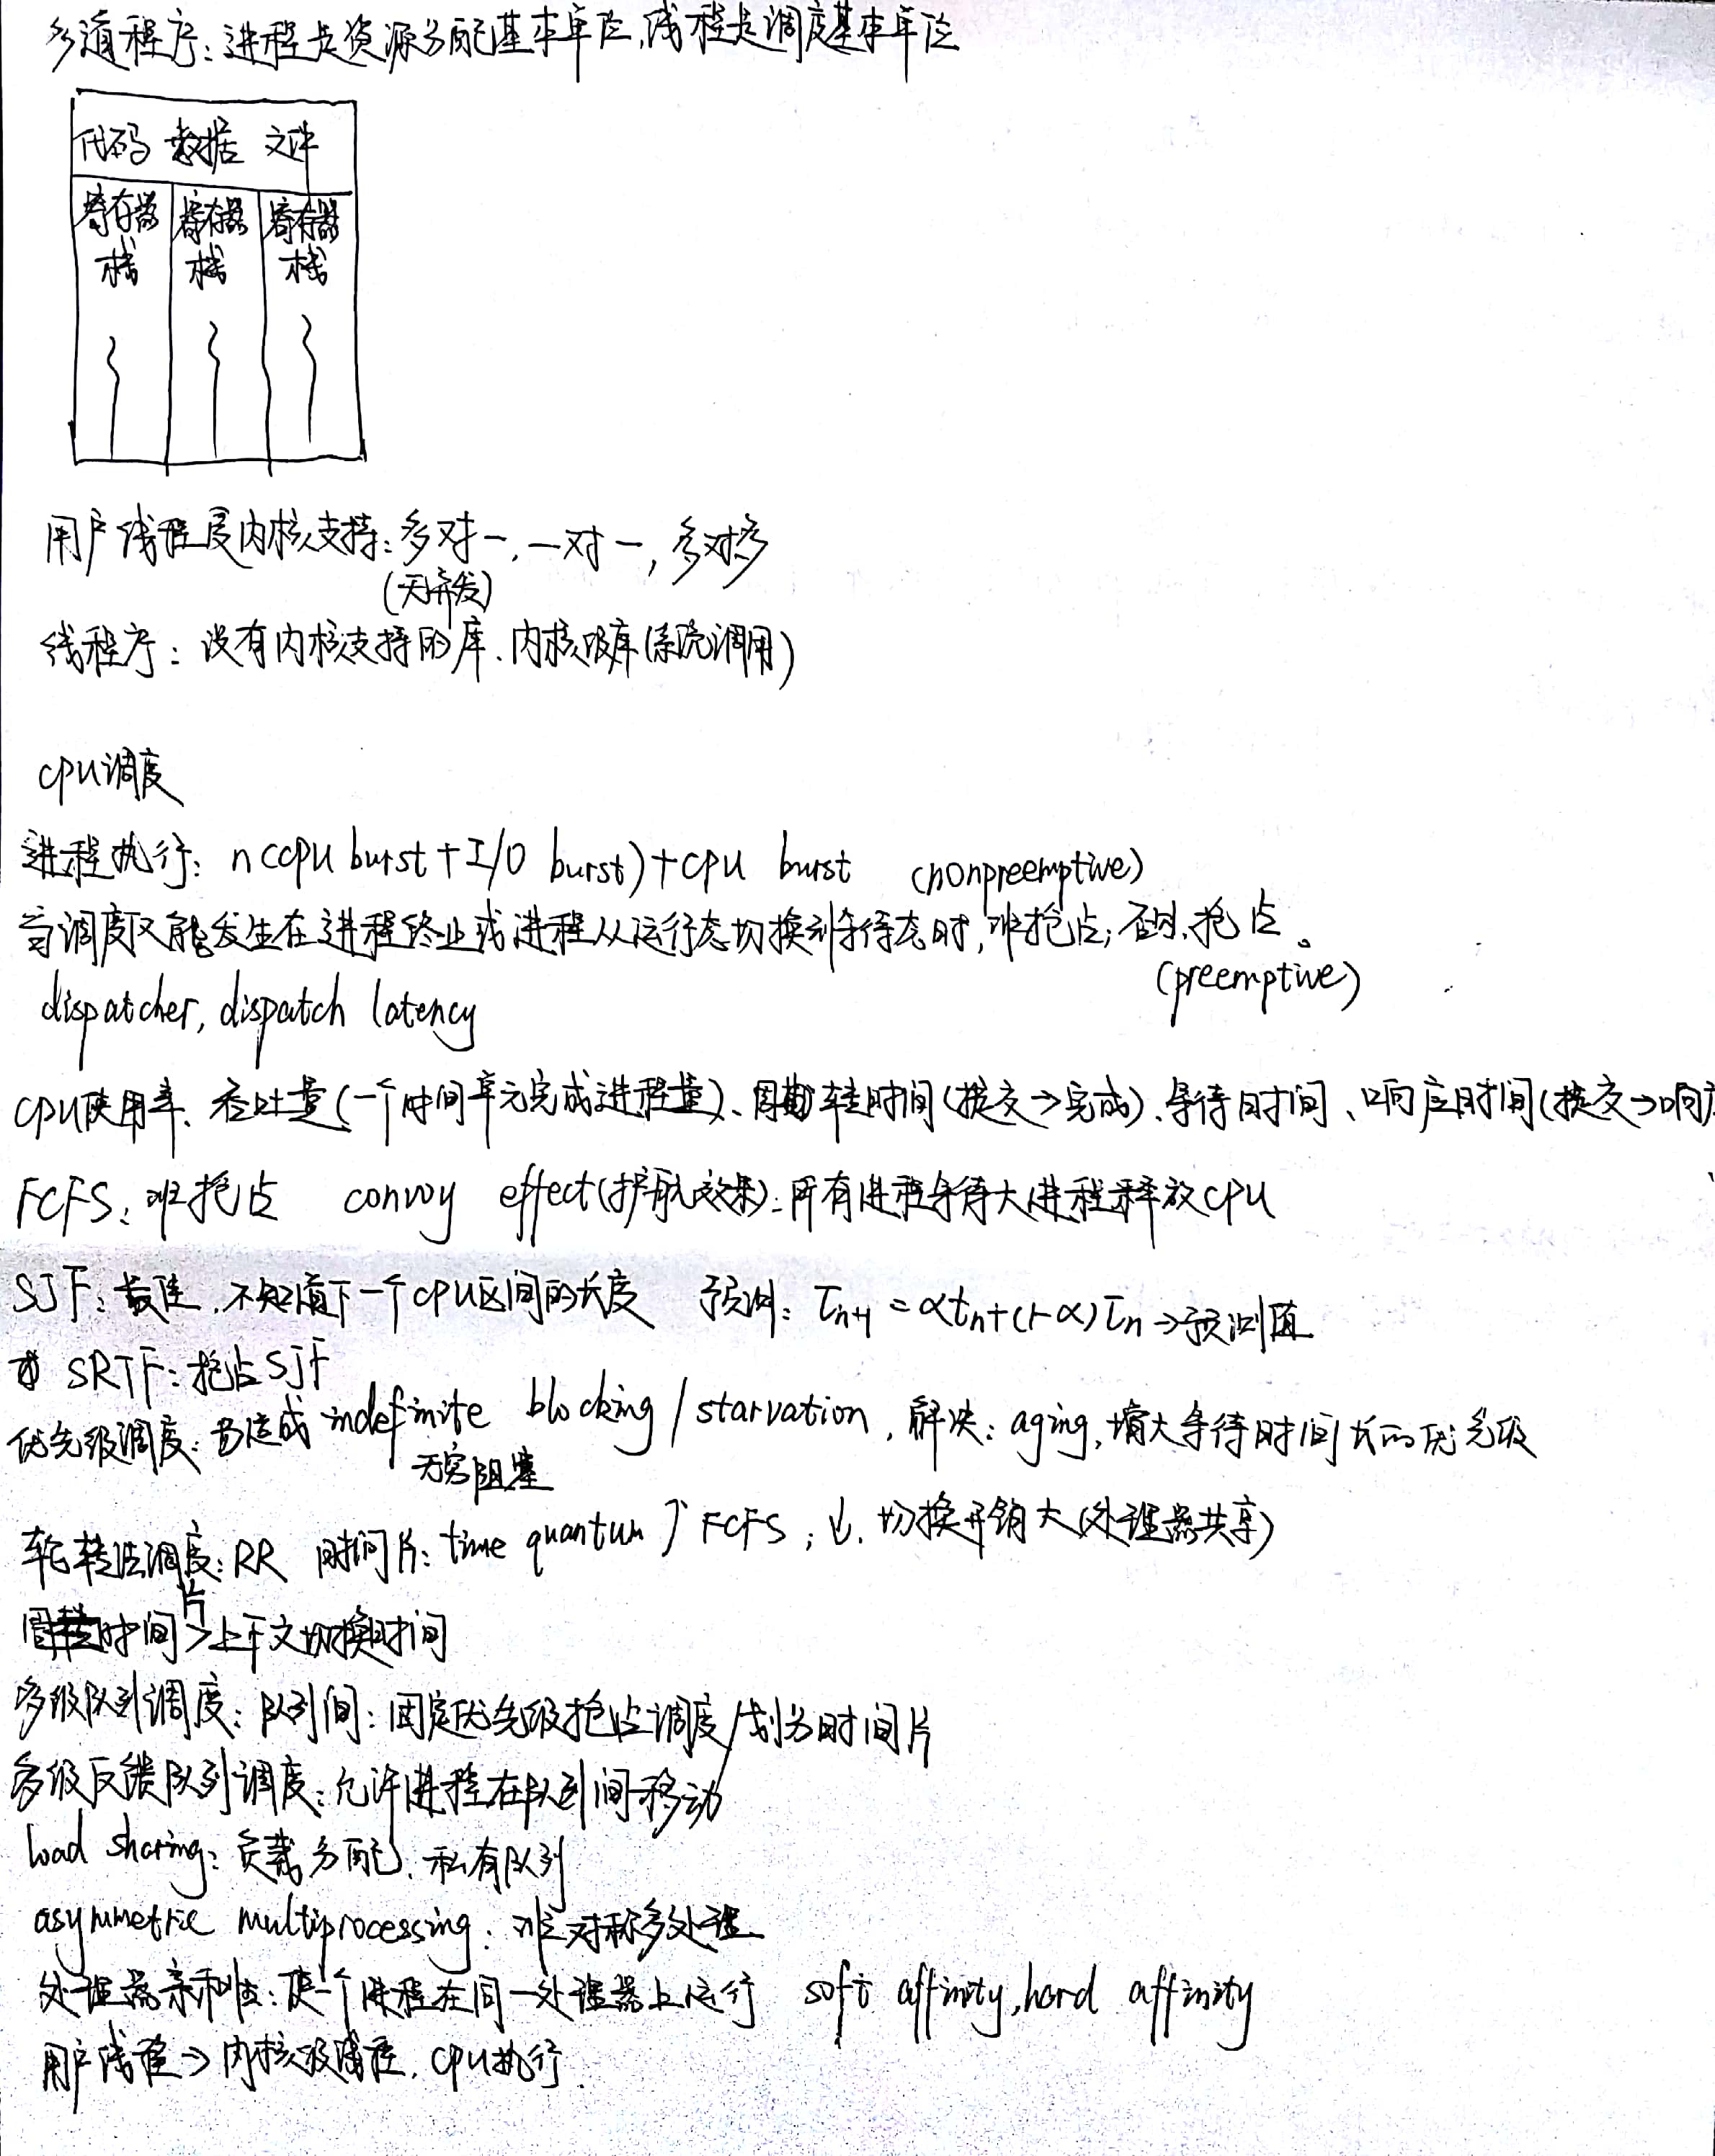 多道程序:进程是资源分配基本单位,线程是调度基本单位
代码 数据 文件
寄存器 寄存器 寄存器
栈 栈 栈
用户线程受内核支持:多对一,一对一,多对多
(无并发)
线程库:没有内核支持的库、内核级库(系统调用)
cpu调度
进程执行: n(cpu burst+I/O burst)+cpu burst (nonpreemptive)
当调度只能发生在进程终止或进程从运行态切换到等待态时,非抢占;否则,抢占。
(preemptive)
dispatcher, dispatch latency
cpu使用率、吞吐量(一个时间单元完成进程量)、周转时间(提交→完成)、等待时间、响应时间(提交→响应
FCFS:非抢占 convoy effect(护航效果):所有进程等待大进程释放cpu
SJF:最佳,不知道下一个cpu区间的长度 预测: τn+1 = αtn+(1-α)τn→预测值
SRTF:抢占SJF
优先级调度:易造成indefinite blocking/starvation,解决: aging,增大等待时间长的优先级
无穷阻塞
轮转法调度:RR 时间片: time quantum ↑ FCFS; ↓,切换开销大(处理器共享)
时间片>上下文切换时间
多级队列调度:队列间:固定优先级抢占调度/划分时间片
多级反馈队列调度:允许进程在队列间移动
load sharing:负载分配,私有队列
asymmetric multiprocessing:非对称多处理
处理器亲和性:使一个进程在同一处理器上运行 soft affinity,hard affinity
用户线程→内核级线程,cpu执行.